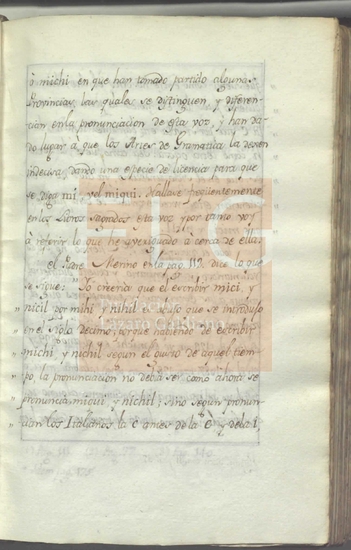 ò michi en que han tomado partido algunas
Provincias, las quales se distinguen, y diferen-
cian en la pronunciacion de esta voz, y han da-
do lugar à que los Artes de Gramatica la dexen
indecisa, dando una especie de licencia para que
se diga mi, y ol miqui. Hallase freqüentemente
en los Libros Sagrados esta voz y por tanto voy
à referir lo que he averiguado a cerca de ella.
El Padre Merino en la pag. 112. dice lo que
se sigue: Yó creeria que el escribir mici, y
" nicil por mihi y nihil es abuso que se introduxo
" en el Siglo decimo, porque habiendo de escribir
" michi, y nichil segun el gusto de aquel tiem-
" po, la pronunciacion no debia ser como ahora se
" pronuncia miqui y nichil; sino segun pronun-
" cian los Italianos la c antes de la e y de la i,
FLG
Fundación
Lázaro Galdiano